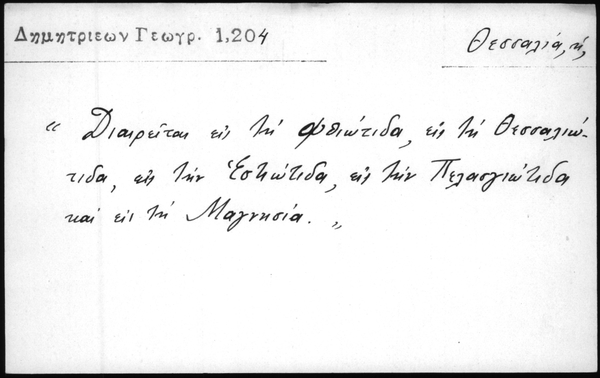 Δημητριεων Γεωγρ. 1,204
Θεσσαλιά, ή,
“ Διαιρεῖται εις τή Φθιώτιδα, εις τή Θεσσαλιώ-
τιδα, εις τήν Ἑστιώτιδα, εις τήν Πελασγιώτιδα
και εις τή Μαγνησία. „